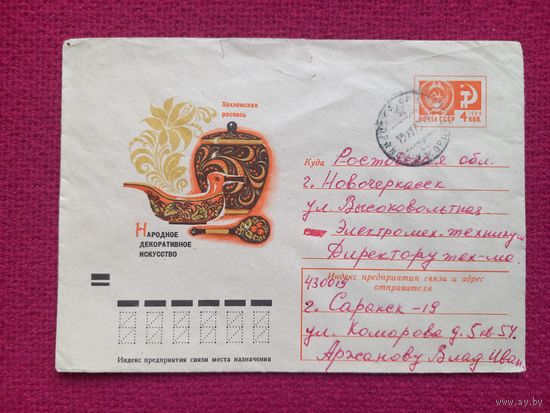 Хохломская
роспись
ПОЧТА СССР
4 КОП
1966
Куда Ростовская обл.
г. Новочеркасск
ул. Высоковольтная
Электромех. техникум
Директору тех-ма.
НАРОДНОЕ
ДЕКОРАТИВНОЕ
ИСКУССТВО
Индекс предприятия связи и адрес
отправителя
430019
г. Саранск-19
ул. Комарова д. 5 кв. 54
Аржанову Влад Иван
Индекс предприятия связи места назначения
www.ay.by